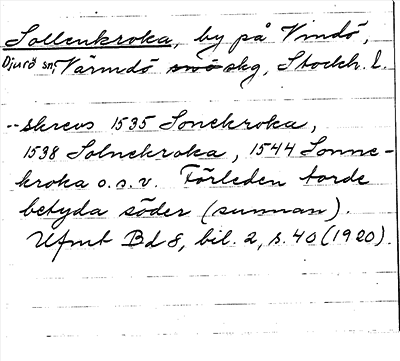 Sollenkroka, by på Vindö,
Djurö sn, Värmdö skg, Stockh. l.
-- skrevs 1535 Sonekroka,
1538 Solnekroka, 1544 Sonne-
kroka o.s.v. Förleden torde
betyda söder (sunnan).
Ufmt Bd 8, bil. 2, s. 40 (1920).